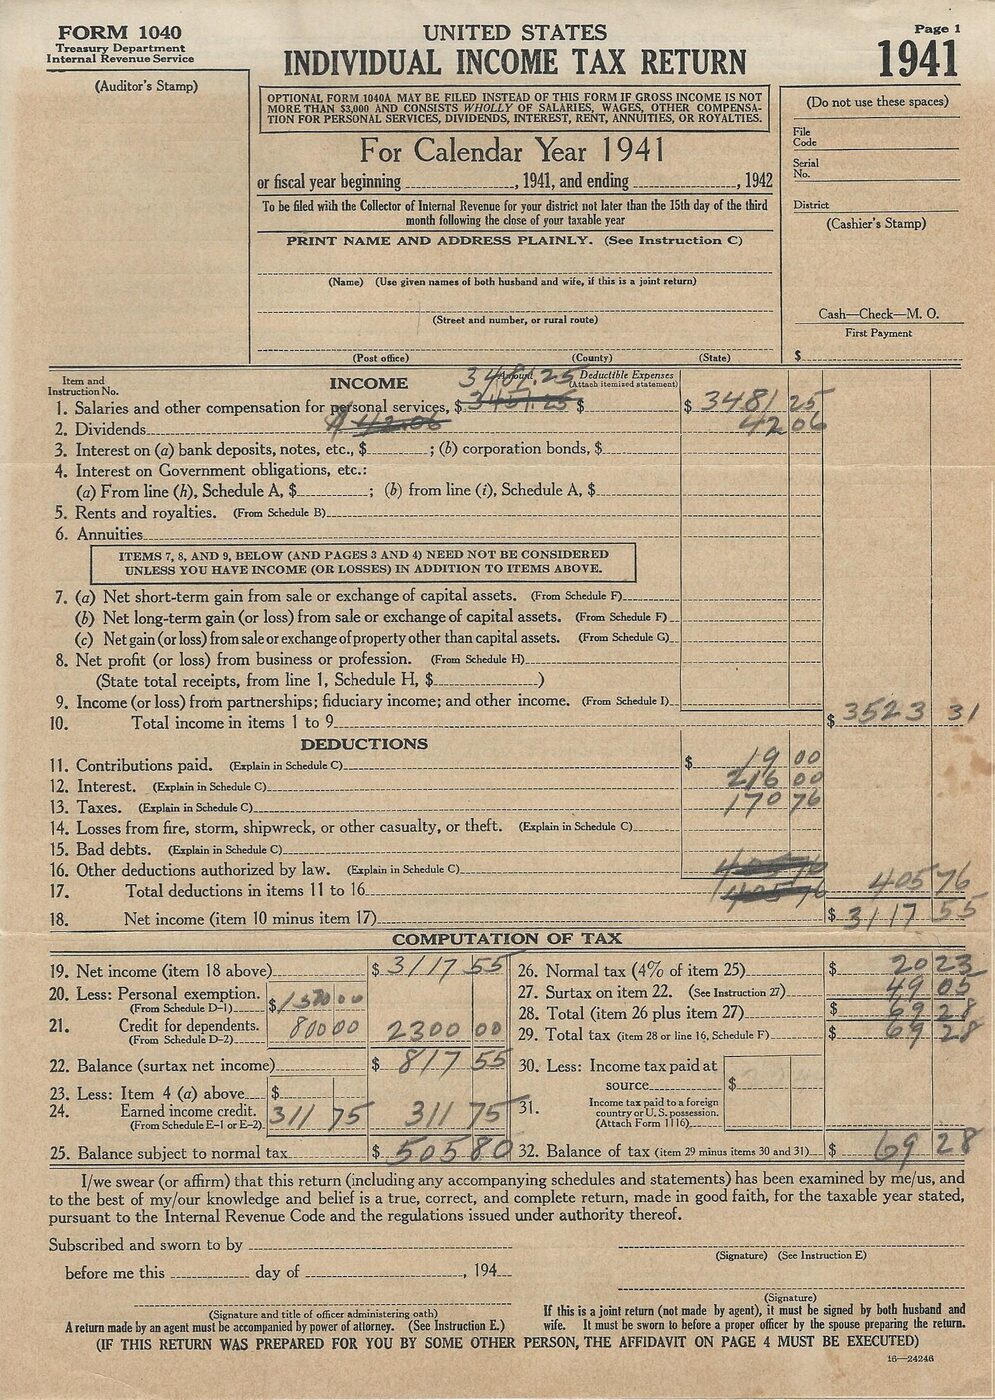 FORM 1040
Treasury Department
Internal Revenue Service
(Auditor's Stamp)
UNITED STATES
INDIVIDUAL INCOME TAX RETURN
Page 1
1941
OPTIONAL FORM 1040A MAY BE FILED INSTEAD OF THIS FORM IF GROSS INCOME IS NOT
MORE THAN $3,000 AND CONSISTS WHOLLY OF SALARIES, WAGES, OTHER COMPENSA-
TION FOR PERSONAL SERVICES, DIVIDENDS, INTEREST, RENT, ANNUITIES, OR ROYALTIES.
For Calendar Year 1941
or fiscal year beginning , 1941, and ending , 1942
To be filed with the Collector of Internal Revenue for your district not later than the 15th day of the third
month following the close of your taxable year
PRINT NAME AND ADDRESS PLAINLY. (See Instruction C)
(Name) (Use given names of both husband and wife, if this is a joint return)
(Street and number, or rural route)
(Post office) (County) (State)
(Do not use these spaces)
File
Code
Serial
No.
District
(Cashier's Stamp)
Cash—Check—M. O.
First Payment
$
Item and
Instruction No.
INCOME
3481.25 Amount Deductible Expenses
(Attach itemized statement)
1. Salaries and other compensation for personal services, $ 3451.25 $ $ 3481 25
2. Dividends 42.06 42 06
3. Interest on (a) bank deposits, notes, etc., $ ; (b) corporation bonds, $
4. Interest on Government obligations, etc.:
(a) From line (h), Schedule A, $ ; (b) from line (i), Schedule A, $
5. Rents and royalties. (From Schedule B)
6. Annuities
ITEMS 7, 8, AND 9, BELOW (AND PAGES 3 AND 4) NEED NOT BE CONSIDERED
UNLESS YOU HAVE INCOME (OR LOSSES) IN ADDITION TO ITEMS ABOVE.
7. (a) Net short-term gain from sale or exchange of capital assets. (From Schedule F)
(b) Net long-term gain (or loss) from sale or exchange of capital assets. (From Schedule F)
(c) Net gain (or loss) from sale or exchange of property other than capital assets. (From Schedule G)
8. Net profit (or loss) from business or profession. (From Schedule H)
(State total receipts, from line 1, Schedule H, $ )
9. Income (or loss) from partnerships; fiduciary income; and other income. (From Schedule I)
10. Total income in items 1 to 9 $ 3523 31
DEDUCTIONS
11. Contributions paid. (Explain in Schedule C) $ 19 00
12. Interest. (Explain in Schedule C) 216 00
13. Taxes. (Explain in Schedule C) 170 76
14. Losses from fire, storm, shipwreck, or other casualty, or theft. (Explain in Schedule C)
15. Bad debts. (Explain in Schedule C)
16. Other deductions authorized by law. (Explain in Schedule C) 405 76
17. Total deductions in items 11 to 16 405 76 405 76
18. Net income (item 10 minus item 17) $ 3117 55
COMPUTATION OF TAX
19. Net income (item 18 above) $ 3117 55
20. Less: Personal exemption. $ 1500 00
(From Schedule D-1)
21. Credit for dependents. 800 00 2300 00
(From Schedule D-2)
22. Balance (surtax net income) $ 817 55
23. Less: Item 4 (a) above $
24. Earned income credit. 311 75 311 75
(From Schedule E-1 or E-2)
25. Balance subject to normal tax $ 505 80
26. Normal tax (4% of item 25) $ 20 23
27. Surtax on item 22. (See Instruction 27) 49 05
28. Total (item 26 plus item 27) $ 69 28
29. Total tax (item 28 or line 16, Schedule F) $ 69 28
30. Less: Income tax paid at
source $
31. Income tax paid to a foreign
country or U. S. possession.
(Attach Form 1116)
32. Balance of tax (item 29 minus items 30 and 31) $ 69 28
I/we swear (or affirm) that this return (including any accompanying schedules and statements) has been examined by me/us, and
to the best of my/our knowledge and belief is a true, correct, and complete return, made in good faith, for the taxable year stated,
pursuant to the Internal Revenue Code and the regulations issued under authority thereof.
Subscribed and sworn to by
before me this day of , 194
(Signature) (See Instruction E)
(Signature)
(Signature and title of officer administering oath)
A return made by an agent must be accompanied by power of attorney. (See Instruction E.)
If this is a joint return (not made by agent), it must be signed by both husband and
wife. It must be sworn to before a proper officer by the spouse preparing the return.
(IF THIS RETURN WAS PREPARED FOR YOU BY SOME OTHER PERSON, THE AFFIDAVIT ON PAGE 4 MUST BE EXECUTED)
16—24246